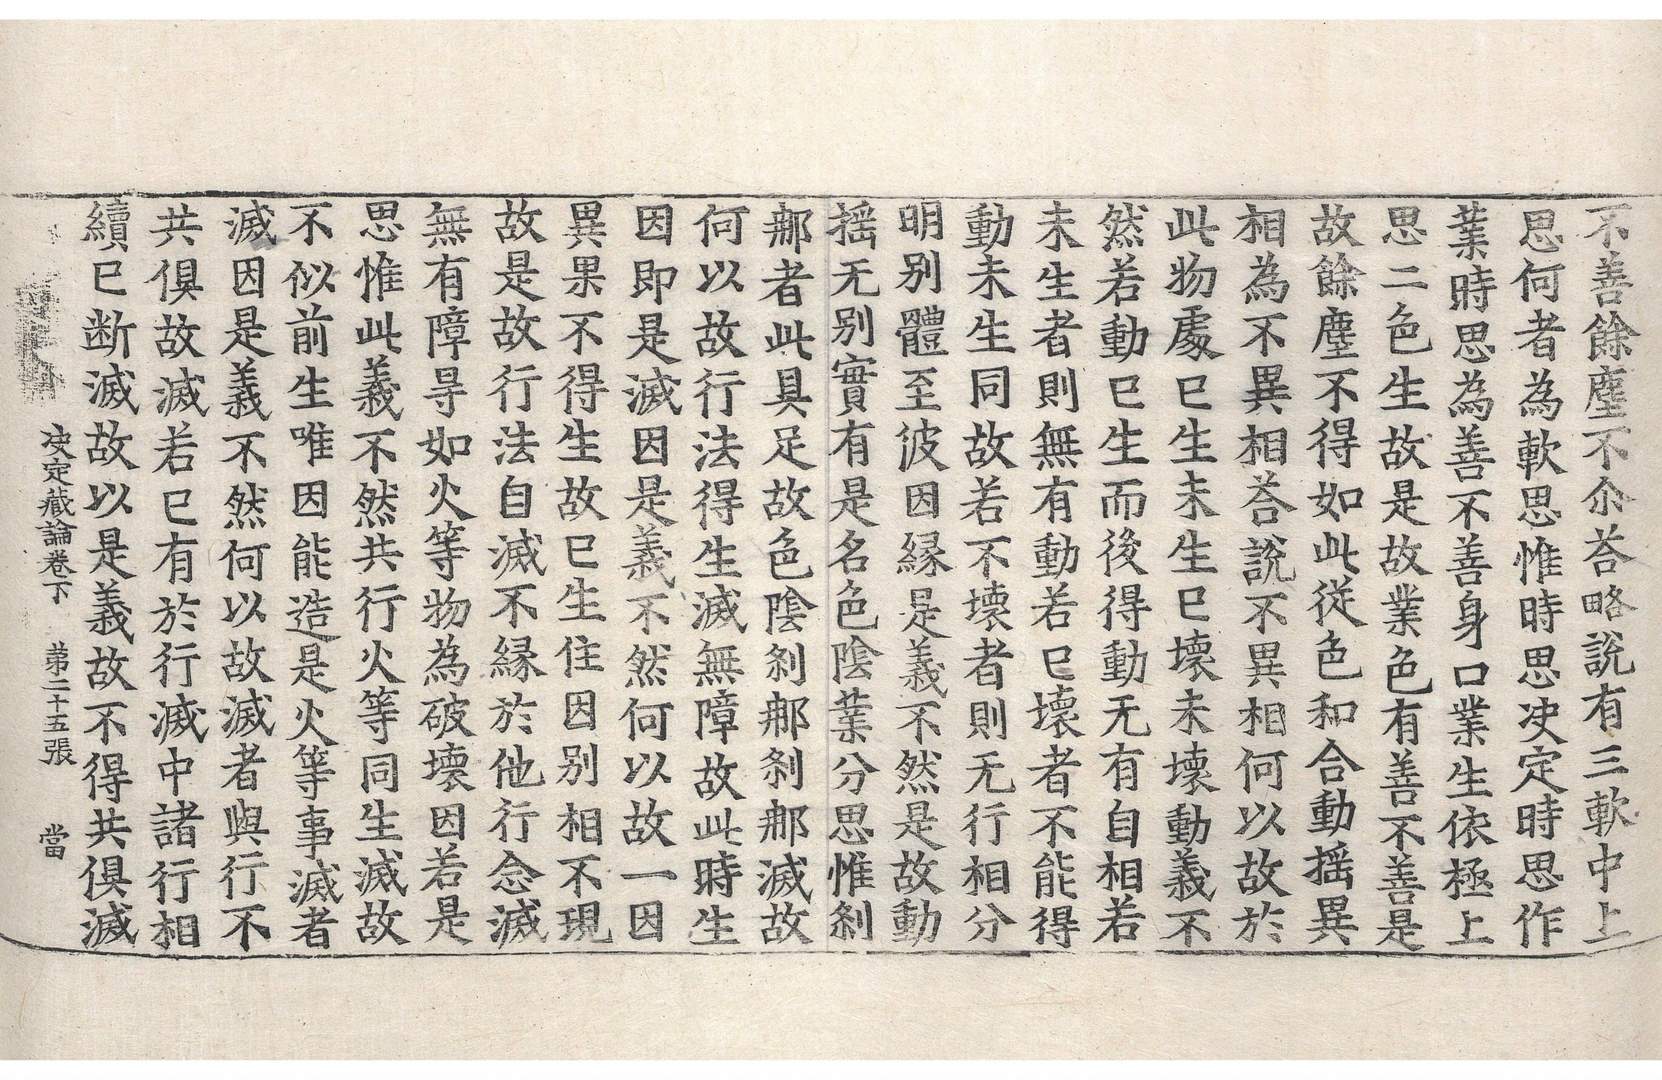 不善餘塵不尒荅略說有三軟中上
思何者為軟思惟時思决定時思作
業時思為善不善身口業生依極上
思二色生故是故業色有善不善是
故餘塵不得如此從色和合動揺異
相為不異相荅說不異相何以故於
此物處已生未生已壞未壞動義不
然若動已生而後得動无有自相若
未生者則無有動若已壞者不能得
動未生同故若不壞者則无行相分
明别體至彼因縁是義不然是故動
揺无别實有是名色陰業分思惟剎
那者此具足故色陰剎那剎那滅故
何以故行法得生滅無障故此時生
因即是滅因是義不然何以故一因
異果不得生故已生住因别相不現
故是故行法自滅不縁於他行念滅
無有障㝵如火等物為破壞因若是
思惟此義不然共行火等同生滅故
不似前生唯因能造是火等事滅者
滅因是義不然何以故滅者與行不
共俱故滅若已有於行滅中諸行相
續已断滅故以是義故不得共俱滅
决定藏論卷下　第二十五張　當